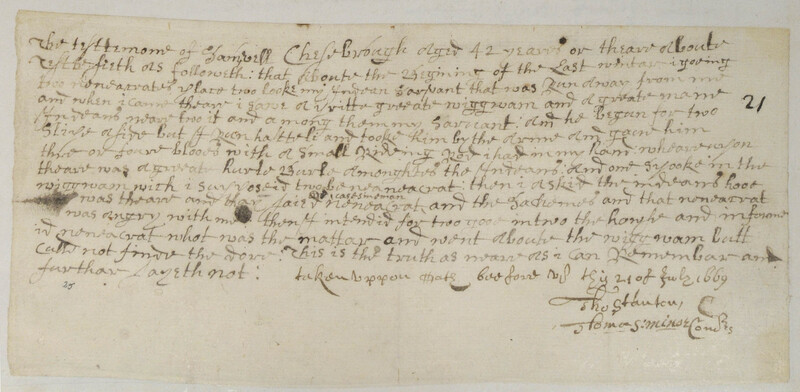 The testtimone of Samvill Chesebrough agid 42 yearrs or theare aboute
testefieth as followeth: that aboute the Begining of the Last wintar i goeing
two nenacrates place two looke my Indean Sarvant that was Run awar from me
and when i came theare i saw a vritte greate wiggwam and a greate mane
Indeans neare two it and among them my Sarvant: and he began for two
Strive aside but I Run hastteli and tooke him by the arme and gave him
thre or foure blooes with a small Rideing Rod i had in my hand wheareuppon
theare was a greate hurle Burle amongktes the Indeans: and one spooke in the
wiggwam wich i supposeid two be nenacrat: then i askid the indeans hooe
was theare and thay said nenecrat and the Sachemes and that nenacrat
catesmoman
was angry with me: then I intendid for two goe intwo the howse and informe
id nenacrat what was the mattar and went aboute the wiggwam butt
Culld not finde the dore: This is the truth as neare as i can Remembar and
farthar sayeth not:
taken uppon oath beefore us thiss 21 of July 1669
Tho Stanton C
Thomas minor Comis
21
25